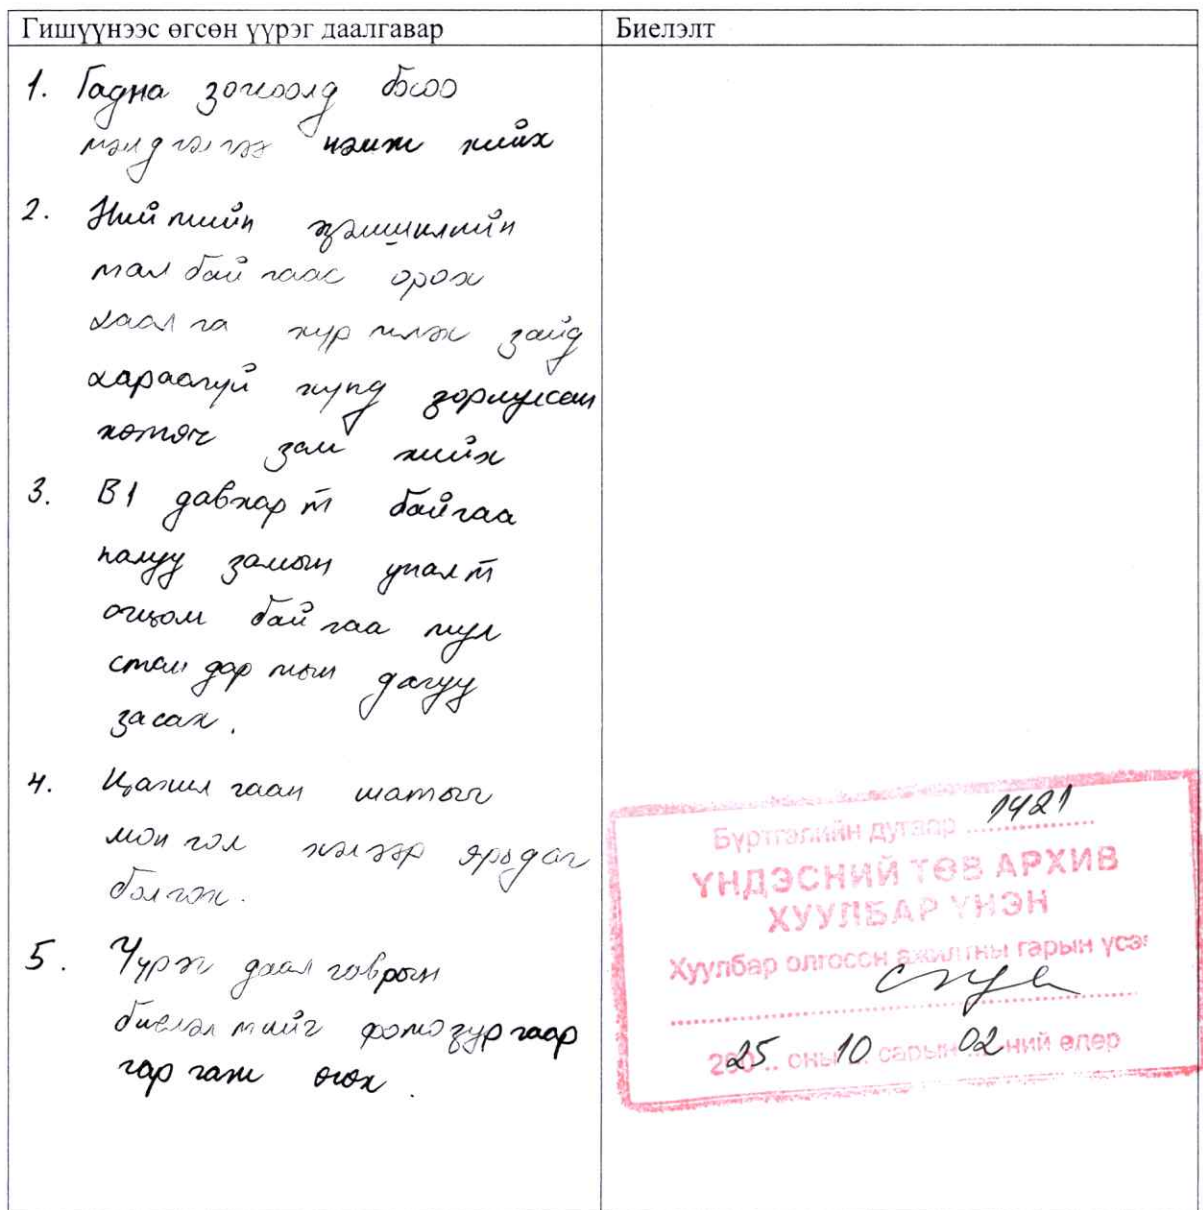 Гишүүнээс өгсөн үүрэг даалгавар
Биелэлт
1. Гадна зогсоолд босоо
тэмдэглэгээ нэмж хийх
2. Нийтийн эзэмшлийн
талбайгаас орох
хаалга хүртэлх зайд
хараагүй хүнд зориулсан
хөтөч зам хийх
3. B1 давхарт байгаа
налуу замын уналт
огцом байгаа тул
стандартын дагуу
засах.
4. Цахилгаан шатыг
монгол хэлээр ярьдаг
болгох.
5. Үүрэг даалгаврын
биелэлтийг фото зургаар
гаргаж өгөх.
Бүртгэлийн дугаар 1421
ҮНДЭСНИЙ ТӨВ АРХИВ
ХУУЛБАР ҮНЭН
Хуулбар олгосон ажилтны гарын үсэг
25 оны 10 сарын 02-ний өдөр